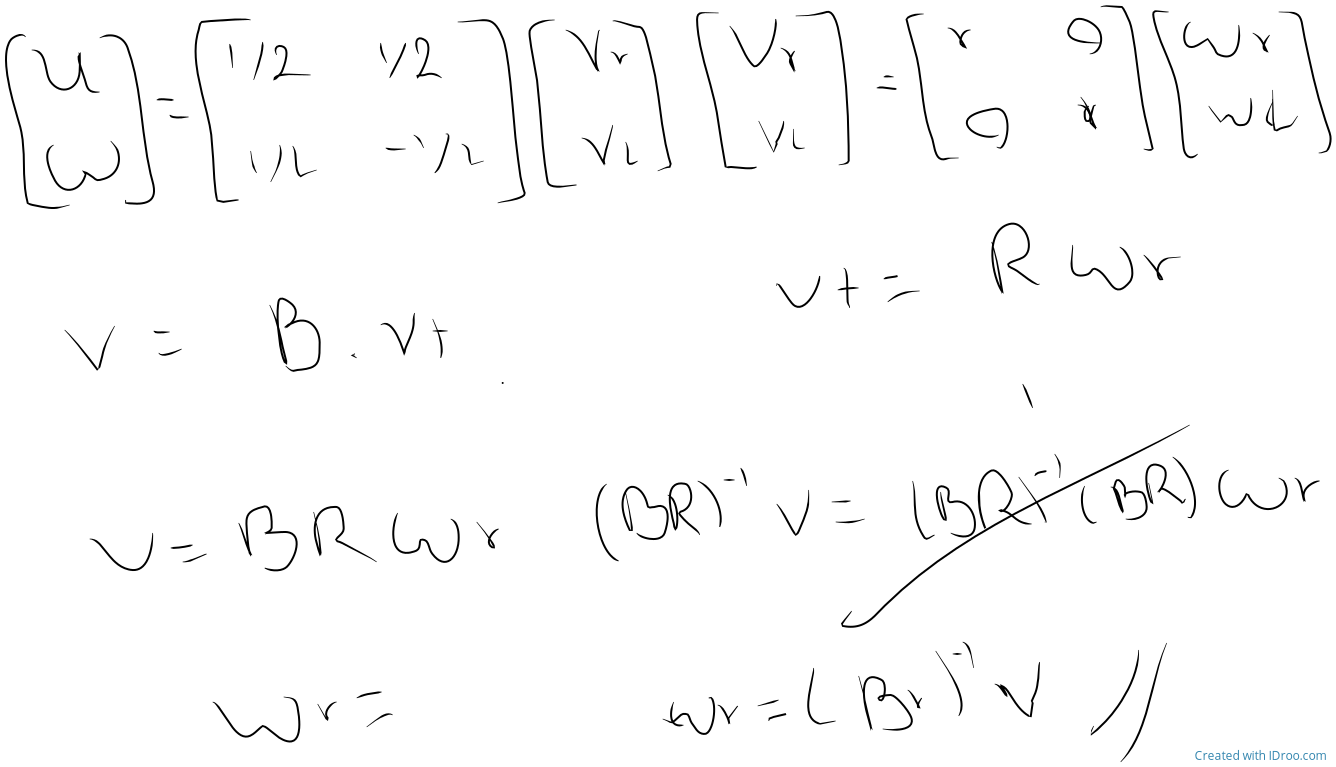 [u; ω] = [1/2 1/2; 1/2 -1/2] [Vr; VL] [Vr; VL] = [r 0; 0 r] [ωr; ωL]
vt = R ωr
V = B . Vt
V = BR ωr (BR)⁻¹ V = (BR)⁻¹ (BR) ωr
ωr = ωr = (Br)⁻¹ V //
Created with IDroo.com